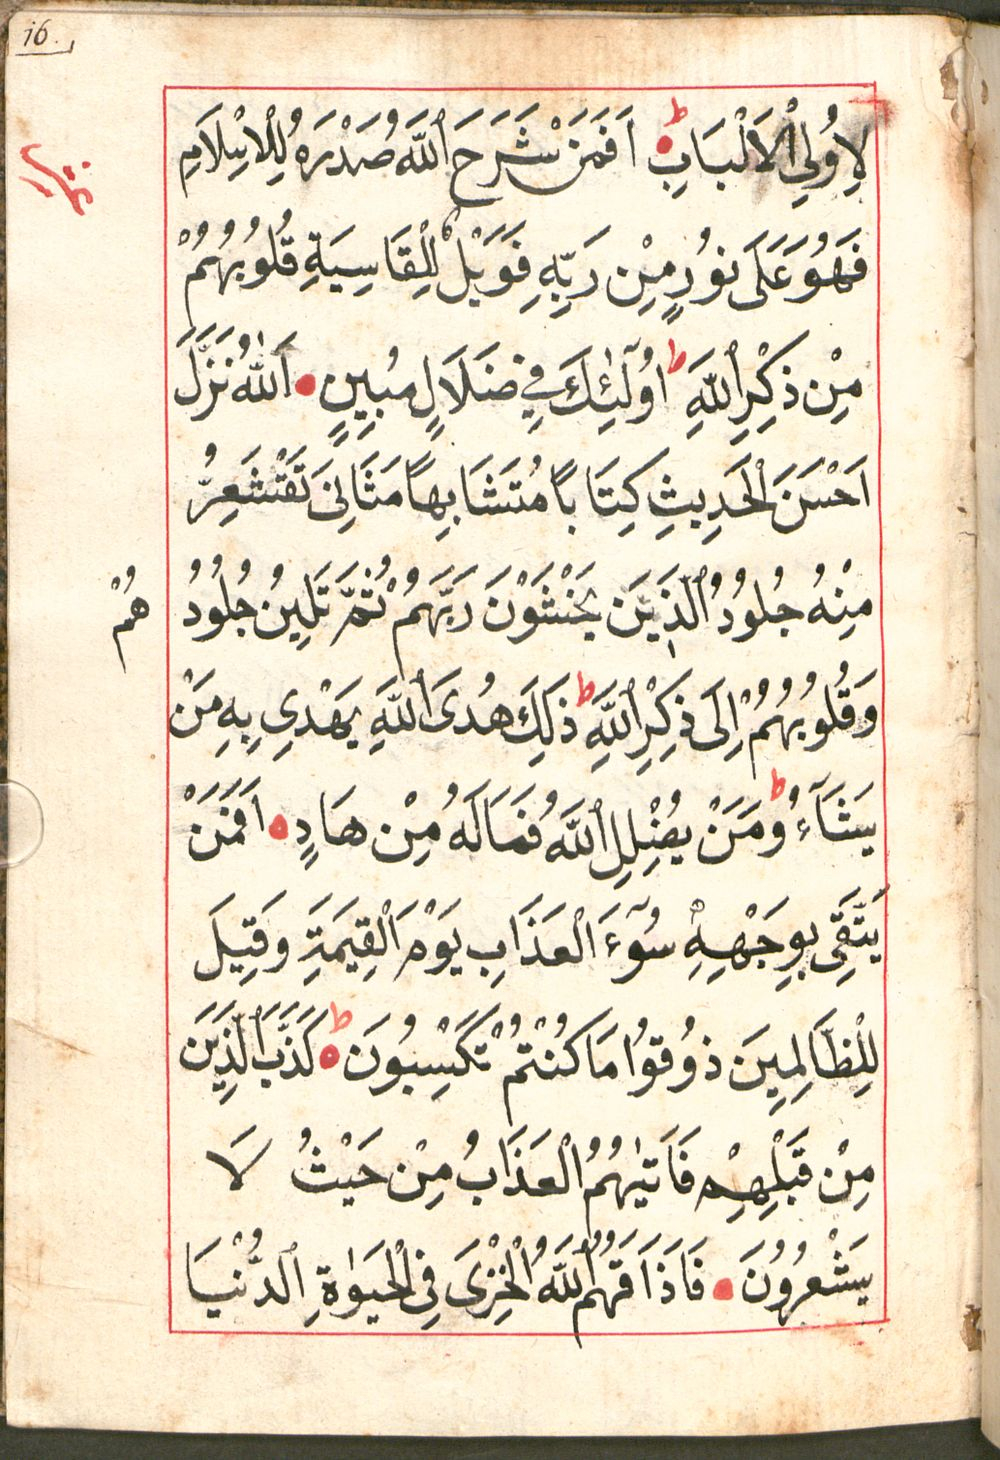 16.
لِاُولِي الْاَلْبَابِ ط اَفَمَنْ شَرَحَ اللّٰهَ صُدْرَهُ لِلْاِسْلَامِ
فَهُوَ عَلَى نُورٍ مِنْ رَبِّهِ فَوَيْلٌ لِلْقَاسِيَةِ قُلُوبُهُمْ
مِنْ ذِكْرِ اللّٰهِ ط اُولٰٓئِكَ فِي ضَلَالٍ مُبِينٍ اَللّٰهُ نَزَّلَ
اَحْسَنَ الْحَدِيثِ كِتَابًا مُتَشَابِهًا مَثَانِيَ تَقْشَعِرُّ
مِنْهُ جُلُودُ الَّذِيَن يَخْشَوْنَ رَبَّهُمْ ثُمَّ تَلِينُ جُلُودُ هُمْ
وَقُلُوبُهُمْ اِلَى ذِكْرِ اللّٰهِ ط ذَلِكَ هُدَى اللّٰهِ يَهْدِي بِهِ مَنْ
يَشَآءُ ط وَمَنْ يُضْلِلِ اللّٰهُ فَمَالَهُ مِنْ هَادٍ اَفَمَنْ
يَتَّقِى بِوَجْهِهِ سُوٓءَ الْعَذَابِ يَوْمَ الْقِيٰمَةِ وَقِيلَ
لِلْظَّالِمِينَ ذُوقُوا مَا كُنْتُمْ تَكْسِبُونَ ط كَذَّبَ الَّذِيَن
مِنْ قَبْلِهِمْ فَاَتٰيهُمُ الْعَذَابُ مِنْ حَيْثُ لَا
يَشْعُرُونَ فَاَذَاقَهُمُ اللّٰهُ الْخِزْىَ فِى الْحَيٰوةِ الدُّنْيَا